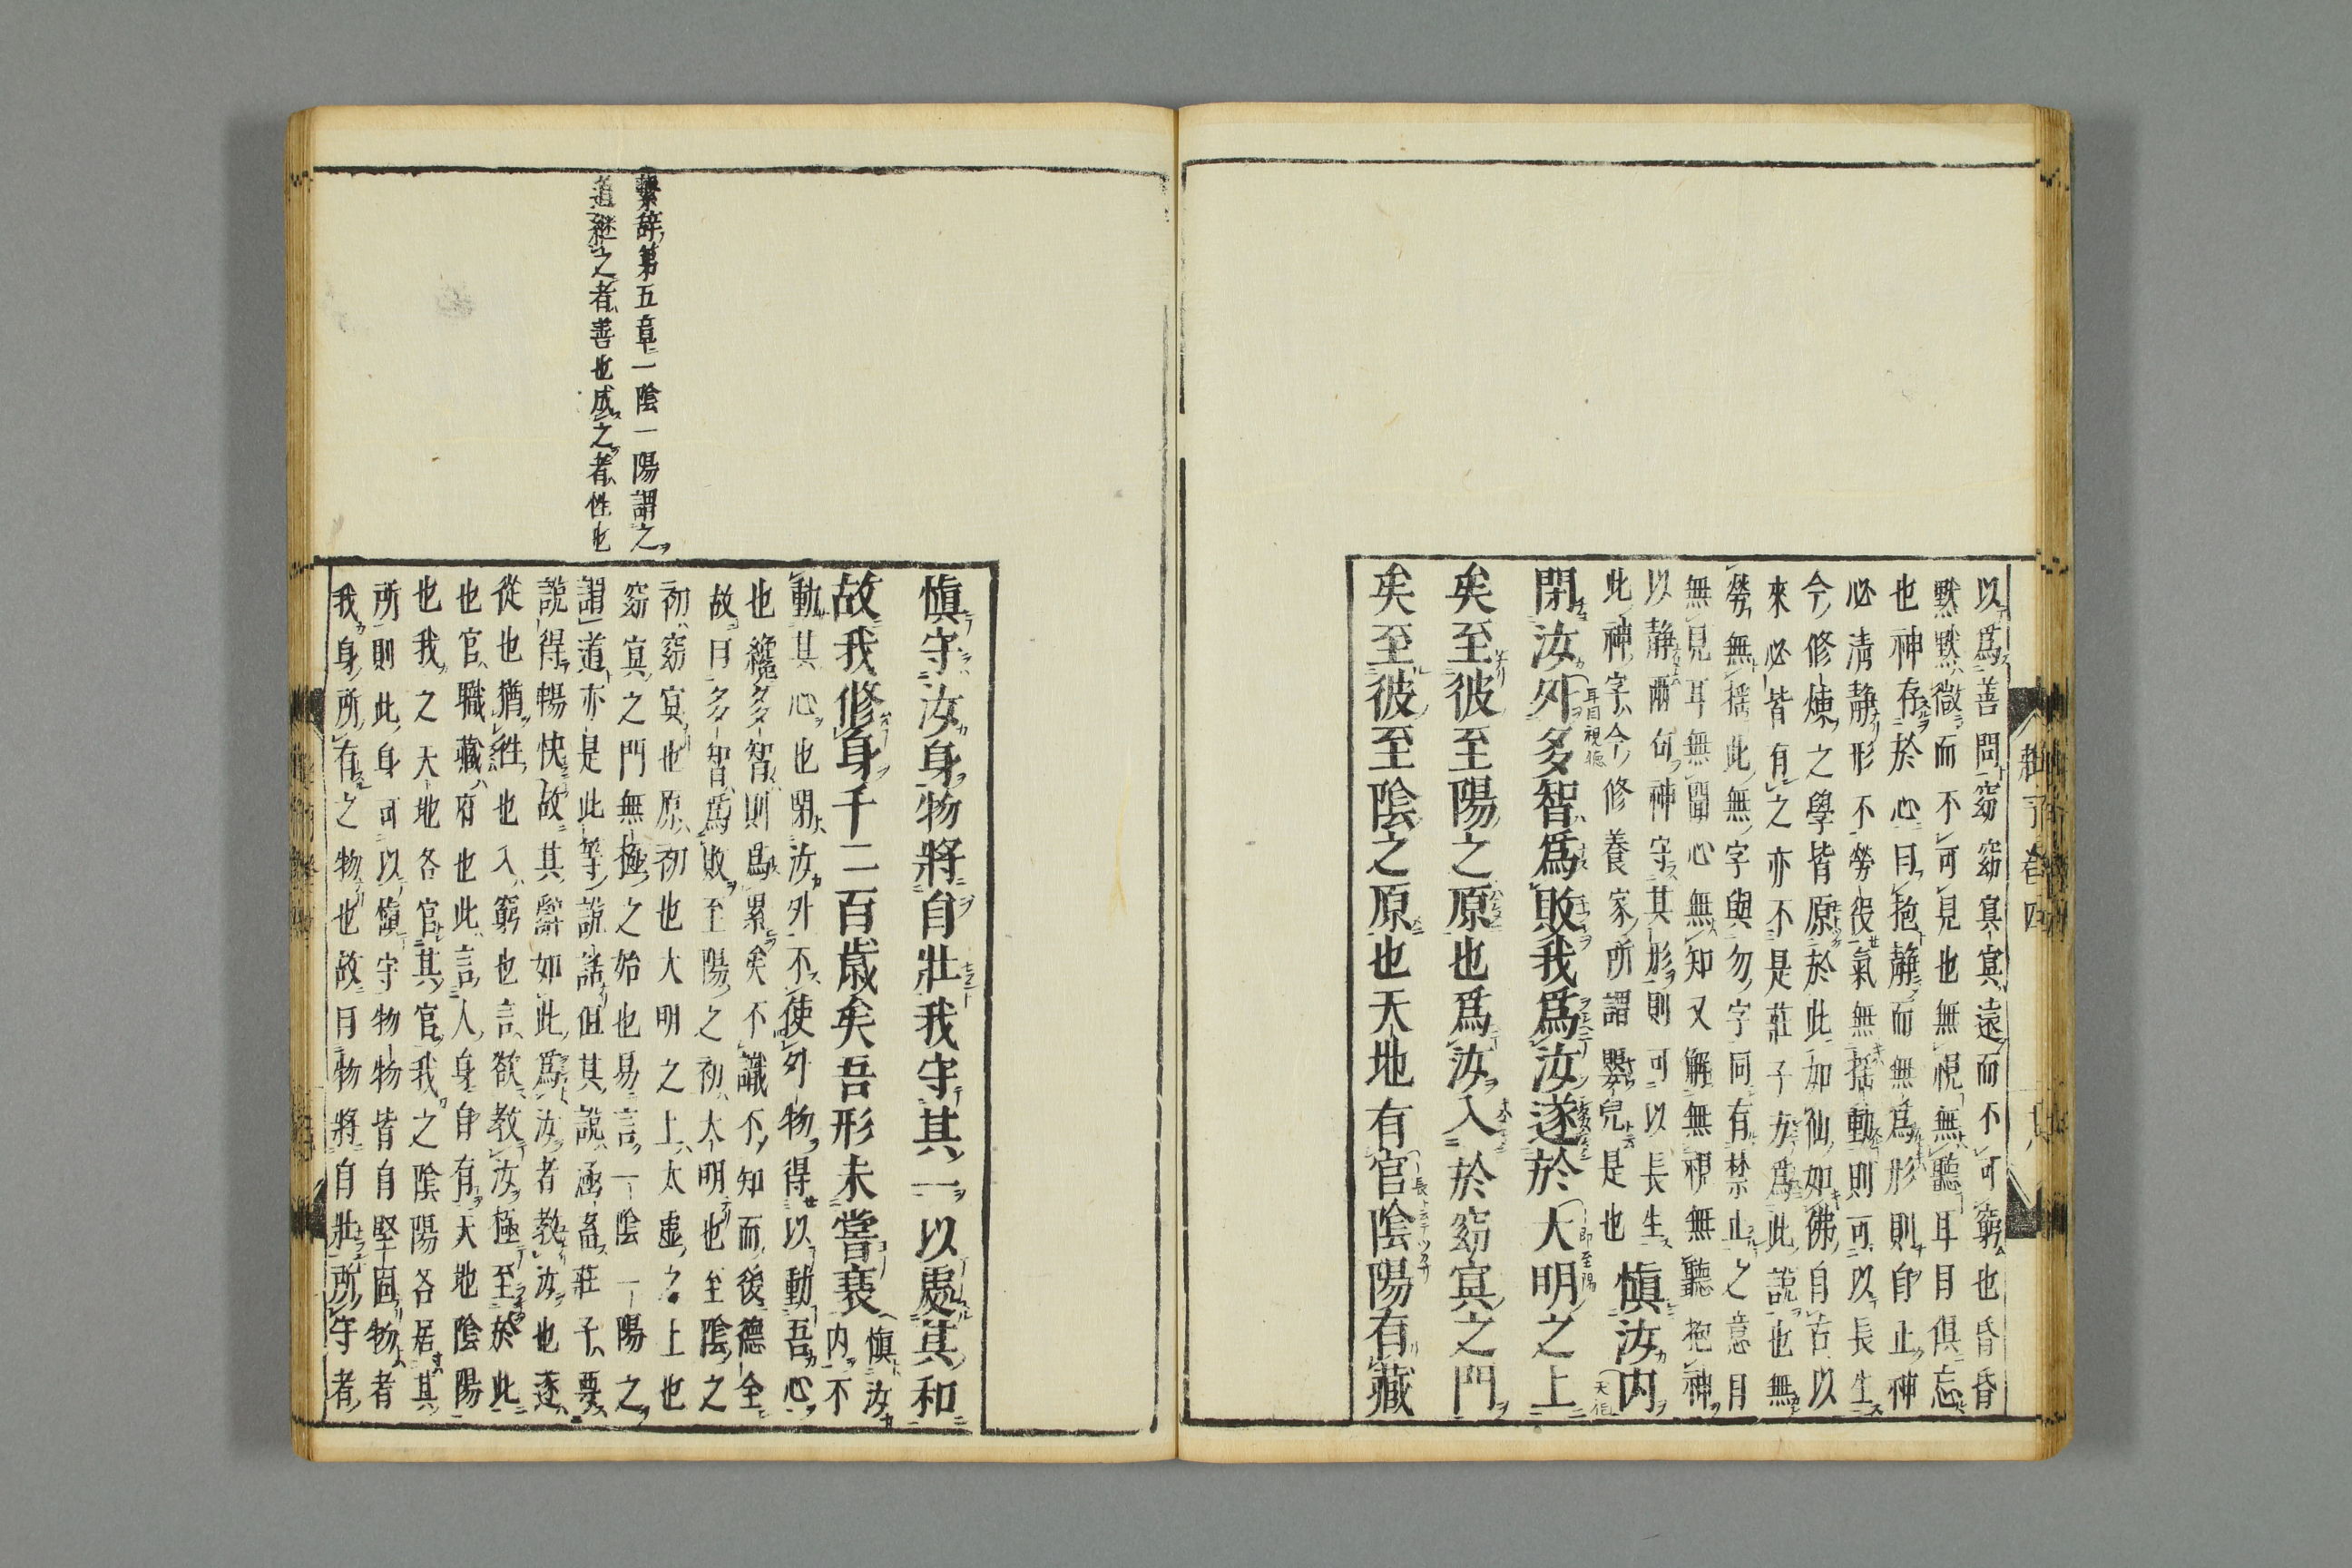 以爲善問窈窈冥冥遠而不可窮也昏昏
默默微而不可見也無視無聽耳目俱忘
也神存於心曰抱静而無爲形則自止神
必清静形不勞役氣無揺動則可以長生
今修煉之學皆原於此如仙如佛自古以
來必皆有之亦不是莊子方爲此説也無
勞無揺此無字與勿字同有禁止之意目
無見耳無聞心無知又解無視無聽抱神
以静兩句神守其形則可以長生
此神字今修養家所謂嬰兒是也
慎汝内
閉汝外
耳目視聽
多智爲敗我爲汝遂於
即至陽
大明之上
矣至彼至陽之原也爲汝入於窈冥之門
矣至彼至陰之原也天地有官陰陽有藏
莊子卷四
慎守汝身物將自壯我守其一以處其和
故我修身千二百歳矣吾形未嘗衰
慎汝
内不
動其心也閉汝外不使外物得以動吾心
也纔多智則爲累矣不識不知而後德全
故曰多智爲敗至陽之初大明也至陰之
初窈冥也原初也大明之上太虚之上也
窈冥之門無極之始也易言一陰一陽之
謂道亦是此等説話但其説涵蓄莊子要
説得暢快故其辭如此爲汝者教汝也遂
從也猶往也入窮也言欲教汝極至於此
也官職藏府也此言人身自有天地陰陽
也我之天地各官其官我之陰陽各居其
所則此身可以慎守物物皆自堅固物者
我身所有之物也故曰物將自壯所守者
繫辞第五章一陰一陽謂之
道継之者善也成之者性也